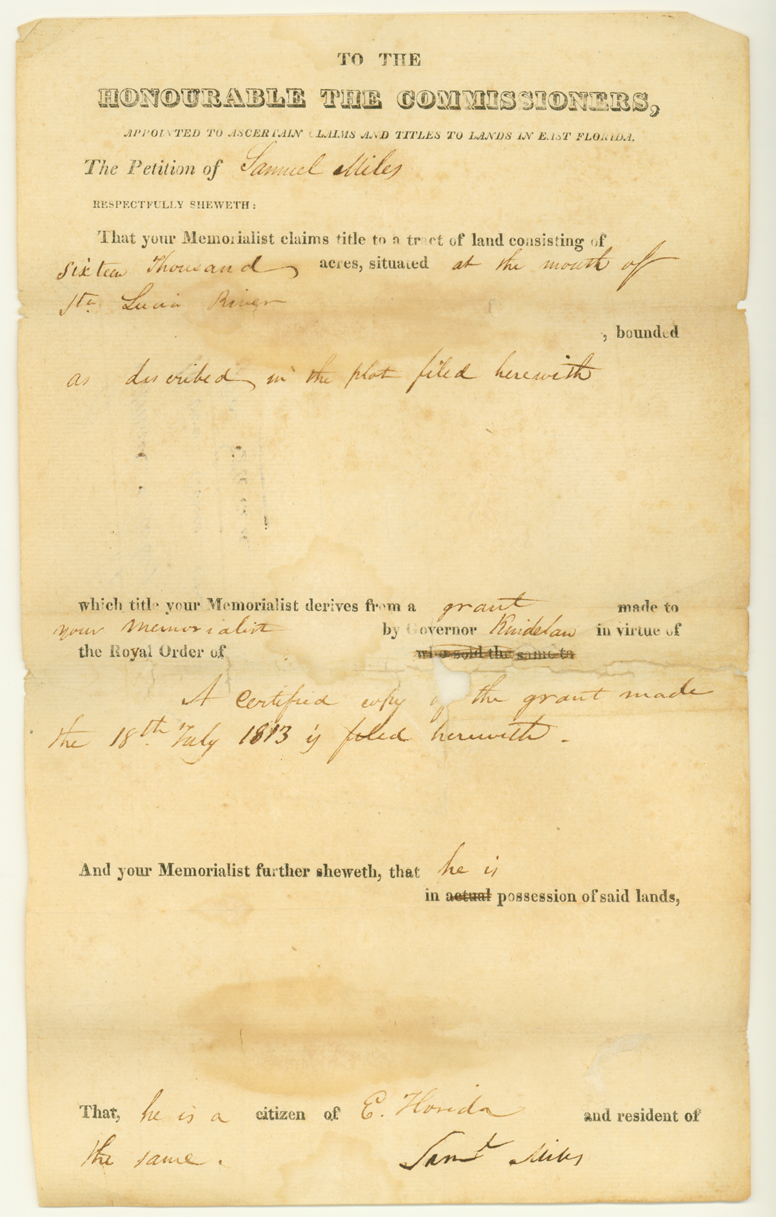 TO THE
HONOURABLE THE COMMISSIONERS,
APPOINTED TO ASCERTAIN CLAIMS AND TITLES TO LANDS IN EAST FLORIDA.
The Petition of Samuel Miles
RESPECTFULLY SHEWETH:
That your Memorialist claims title to a tract of land consisting of
Sixteen Thousand acres, situated at the mouth of
Sta. Lucia River
, bounded
as described in the plot filed herewith
which title your Memorialist derives from a grant made to
your memorialist by Governor Kindelan in virtue of
the Royal Order of who sold the same to
A certified copy of the grant made
the 18th July 1813 is filed herewith.
And your Memorialist further sheweth, that he is
in actual possession of said lands,
That, he is a citizen of E. Florida and resident of
the same. Saml Miles